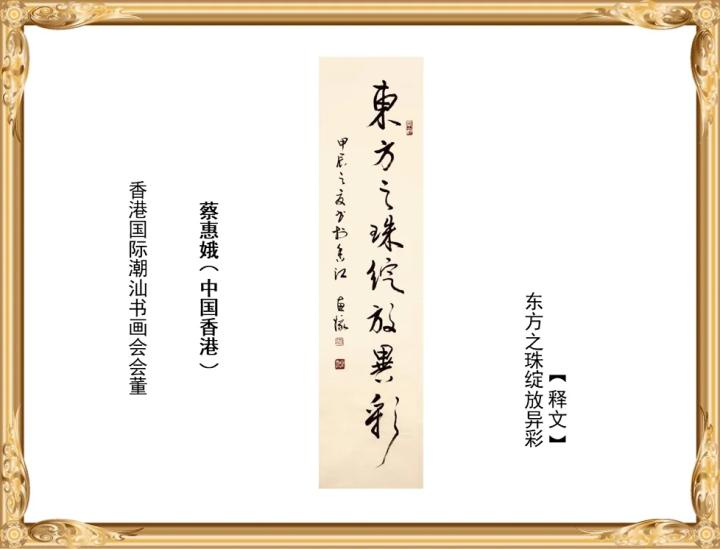 【释文】
东方之珠绽放异彩
東方之珠綻放異彩
甲辰之夏书於香江 惠娥
蔡惠娥（中国香港）
香港国际潮汕书画会会董